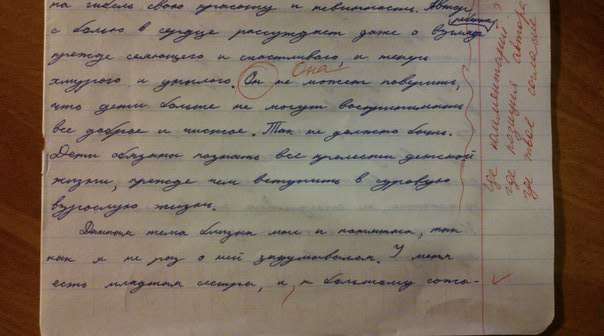 на гибель свою красоту и невинность. Автор
ребёнка
с болью в сердце рассуждает даже о взгляде
прежде сияющего и счастливого и теперь
хмурого и унылого. Он не может поверить,
Она!
что дети больше не могут воспринимать
все доброе и чистое. Так не должно быть.
Дети обязаны познать все прелести детской
жизни, прежде чем вступить в суровую
взрослую жизнь.
Данная тема близка мне и понятна, так
как я не раз о ней задумывалась. У меня
есть младшая сестра, и, к большому сожа-
где комментарий?
где позиция автора
где твое согласие